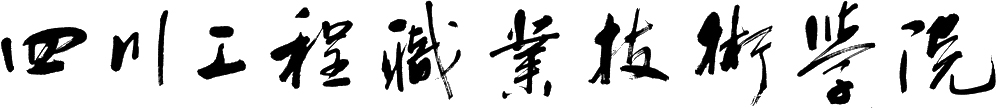 四川工程職業技術學院